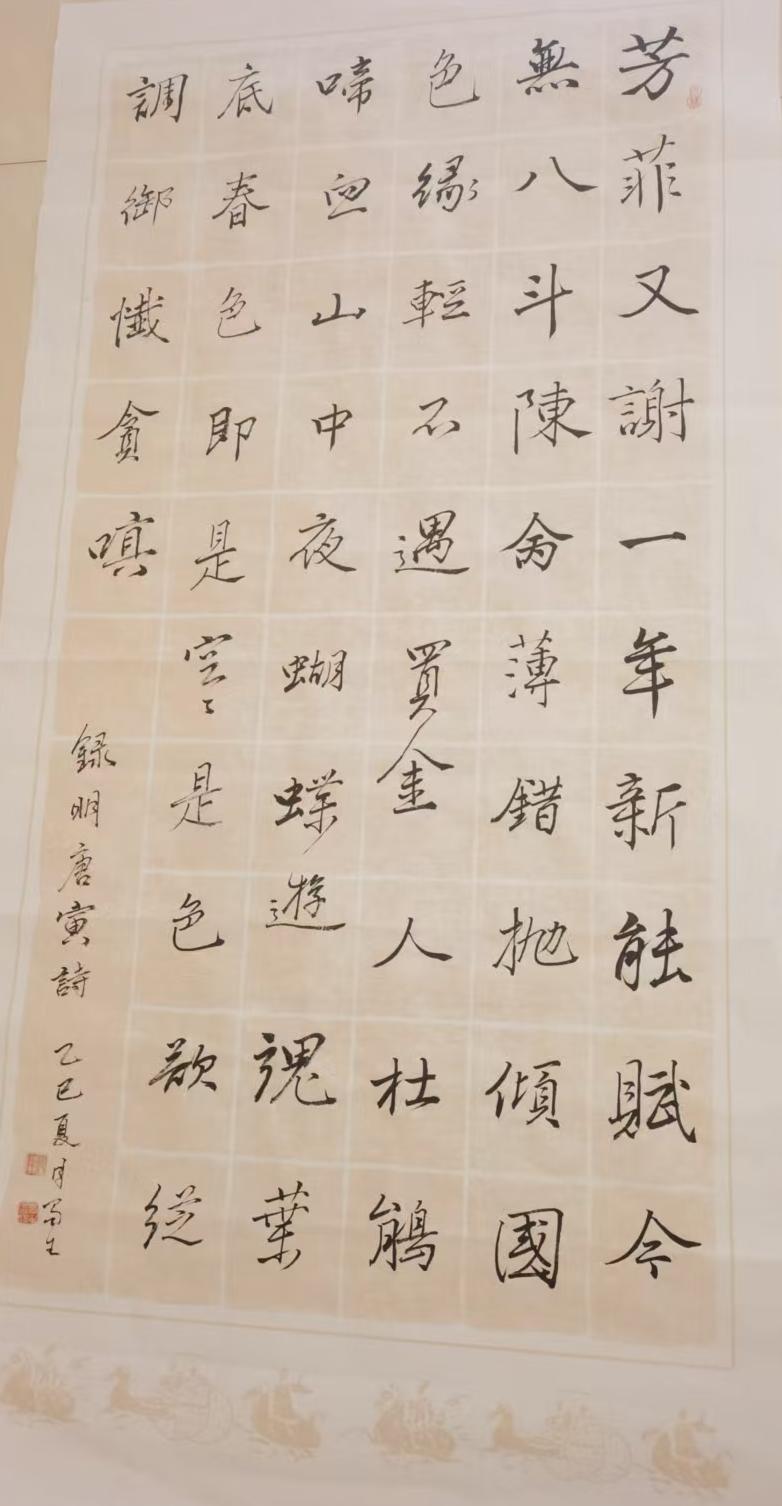 芳菲又謝一年新能賦今
無八斗陳命薄錯抛傾國
色緣輕不遇買金人杜鵑
啼血山中夜蝴蝶遊魂葉
底春色即是空〻是色欲從
調御懺貪嗔
録明唐寅詩 乙巳夏月